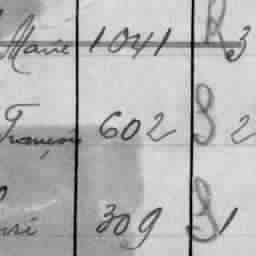 Marie 1041 R 3
François 602 S 2
309 S 1